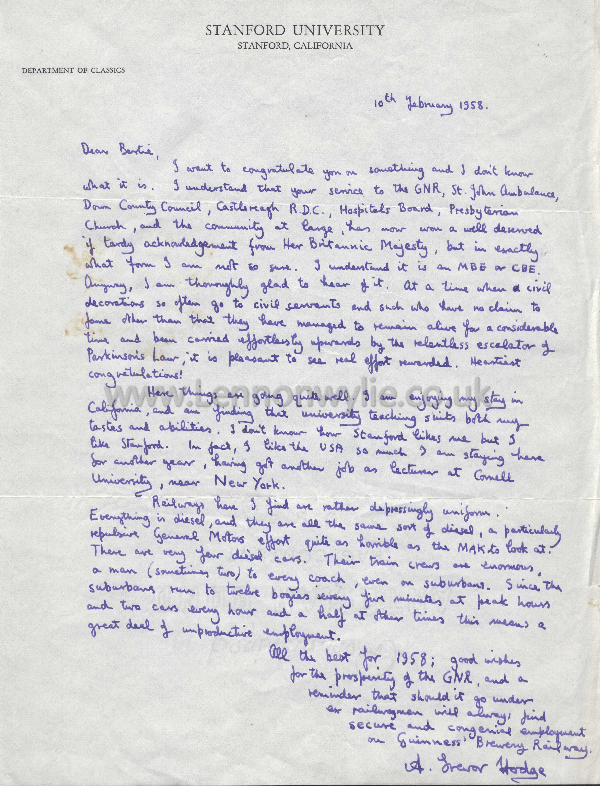 STANFORD UNIVERSITY
STANFORD, CALIFORNIA
DEPARTMENT OF CLASSICS
10th February 1958.
Dear Bertie,
I want to congratulate you on something and I don't know
what it is. I understand that your service to the GNR, St. John Ambulance,
Down County Council, Castlereagh R.D.C., Hospitals Board, Presbyterian
Church, and the community at large has now won a well deserved
if tardy acknowledgement from Her Britannic Majesty, but in exactly
what form I am not so sure. I understand it is an MBE or CBE.
Anyway, I am thoroughly glad to hear of it. At a time when civil
decorations so often go to civil servants and such who have no claim to
fame other than that they have managed to remain alive for a considerable
time and been carried effortlessly upwards by the relentless escalator of
Parkinson's Law, it is pleasant to see real effort rewarded. Heartiest
congratulations!
www.Lennonwylie.co.uk
Here things are going quite well. I am enjoying my stay in
California, and am finding that university teaching suits both my
tastes and abilities. I don't know how Stanford likes me but I
like Stanford. In fact, I like the USA so much I am staying here
for another year, having got another job as lecturer at Cornell
University, near New York.
Railways here I find are rather depressingly uniform.
Everything is diesel, and they are all the same sort of diesel, a particularly
repulsive General Motors effort quite as horrible as the MAK to look at.
There are very few diesel cars. Their train crews are enormous,
a man (sometimes two) to every coach, even on suburbans. Since the
suburbans run to twelve bogies every five minutes at peak hours
and two cars every hour and a half at other times this means a
great deal of unproductive employment.
All the best for 1958; good wishes
for the prosperity of the GNR, and a
reminder that should it go under
ex railwaymen will always find
secure and congenial employment
on Guinness' Brewery Railway.
A. Trevor Hodge